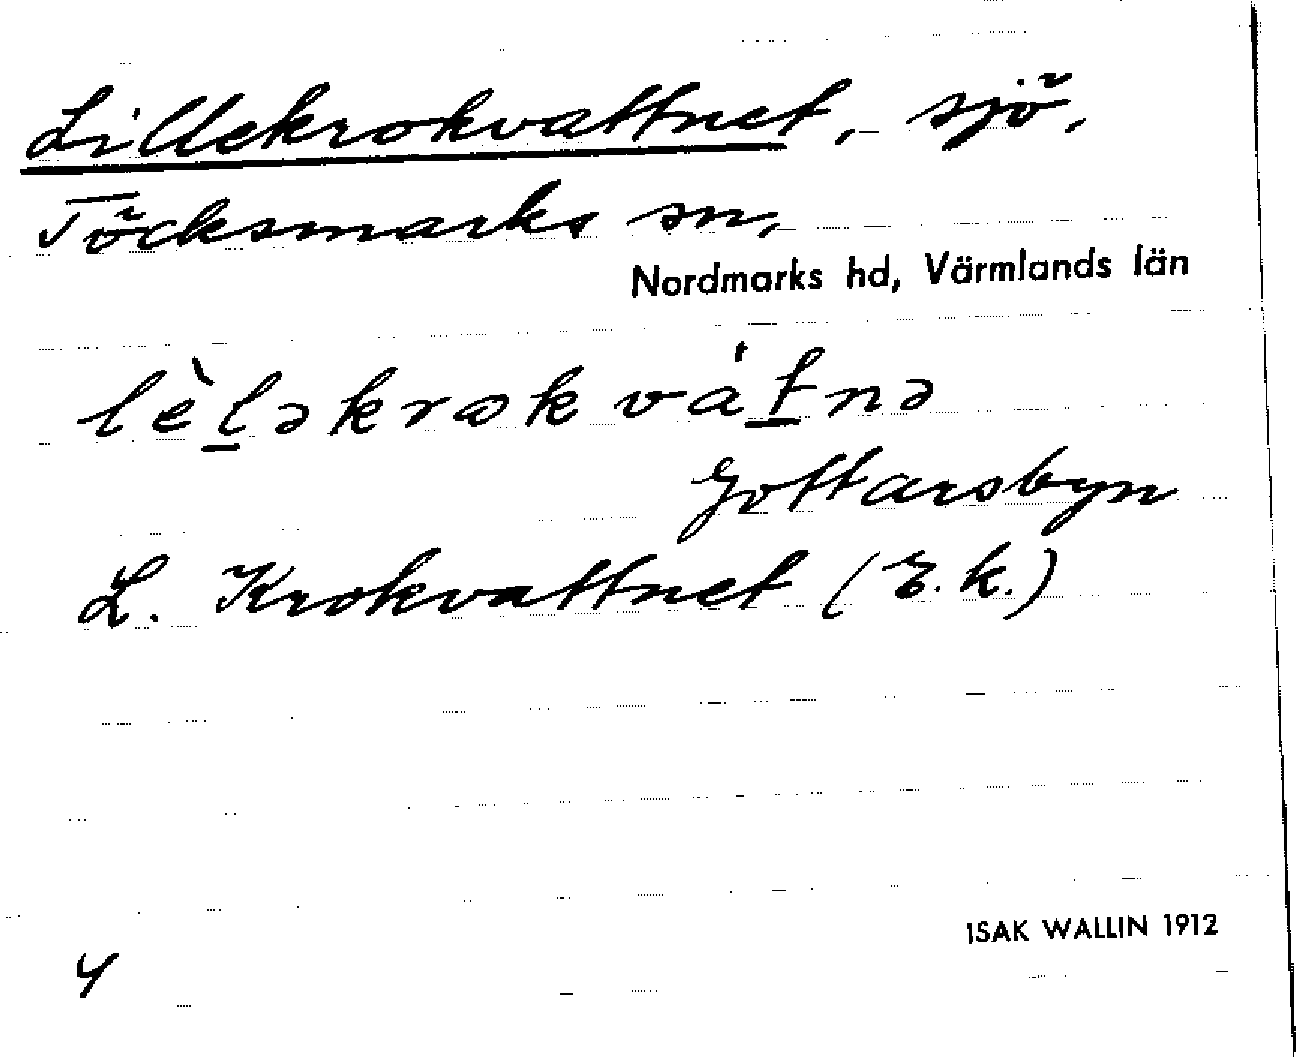 Lillekrokvattnet, sjö,
Töcksmarks sn,
Nordmarks hd, Värmlands län
lèl̲əkrokvát̲nə
Gottarsbyn
L. Krokvattnet (E.k.)
ISAK WALLIN 1912
4